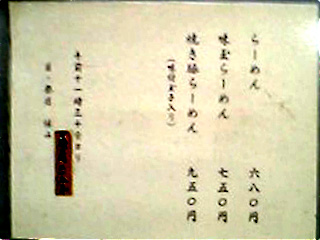 らーめん 六八〇円
味玉らーめん 七五〇円
焼き豚らーめん 九五〇円
(味付玉子入り)
午前十一時三十分より